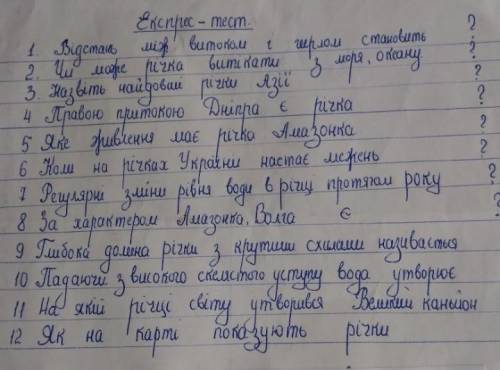 Експрес - тест.
1. Відстань між витоком і гирлом становить ?
2. Чи може річка витікати з моря, океану ?
3 Назвіть найдовшi річки Азії ?
4 Правою притокою Дніпра є річка ?
5 Яке живлення має річка Амазонка ?
6 Коли на річках України настає межень ?
7 Регулярні зміни рівня води в річці протягом року ?
8 За характером Амазонка, Волга є ?
9 Глибока долина річки з крутими схилами називається
10 Падаючи з високого скелястого уступу вода утворює
11 На якій річці світу утворився Великий каньйон
12 Як на карті показують річки